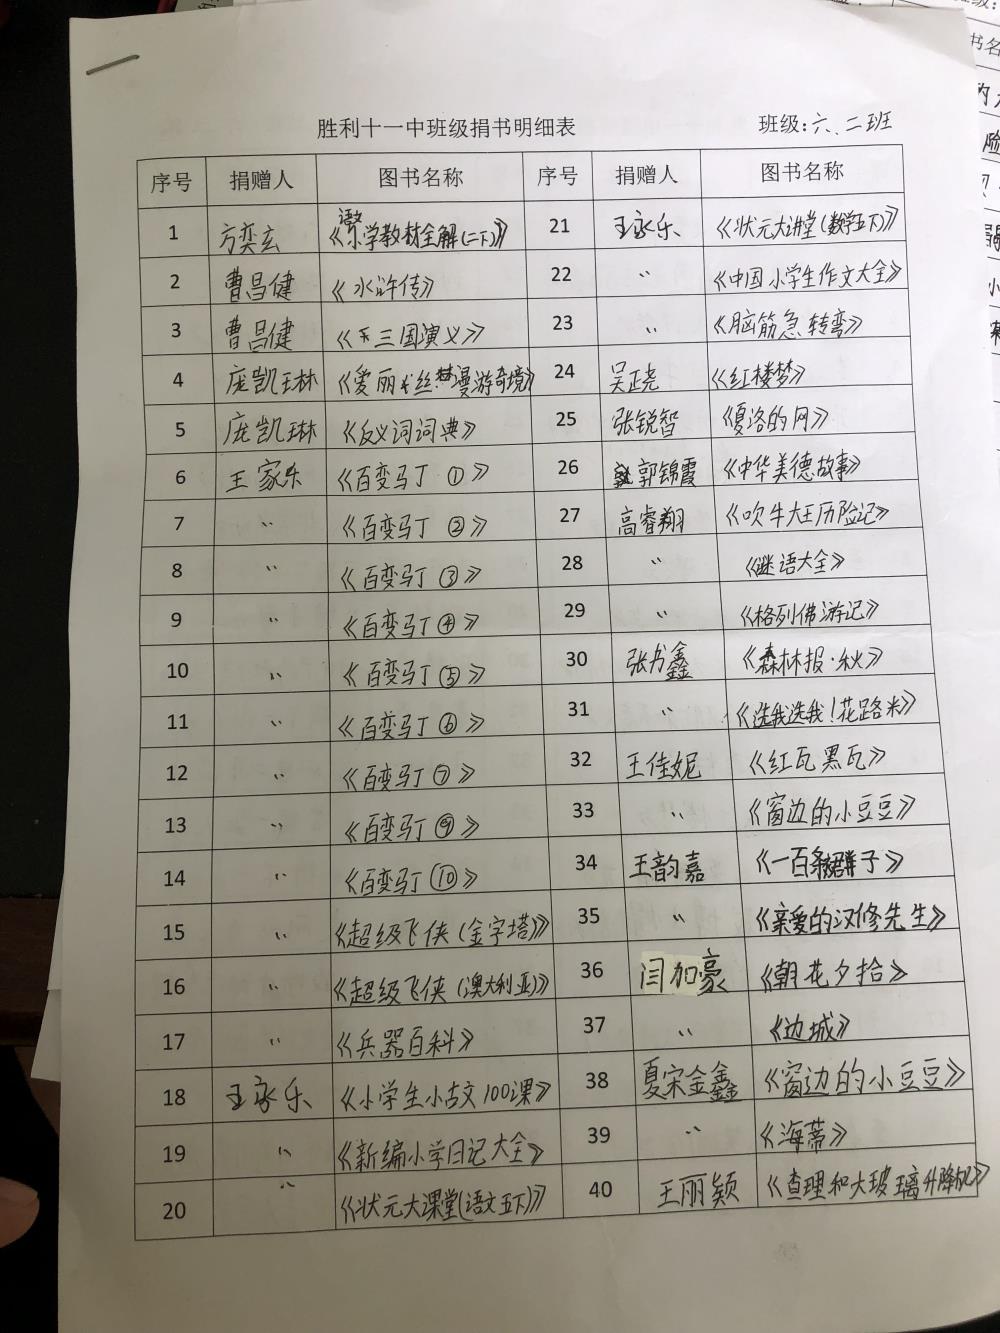 胜利十一中班级捐书明细表 班级:六、二班
序号 捐赠人 图书名称 序号 捐赠人 图书名称
1 方奕玄 《语文小学教材全解(二下)》 21 王家乐 《状元大讲堂(数学五下)》
2 曹昌健 《水浒传》 22 〃 《中国小学生作文大全》
3 曹昌健 《三国演义》 23 〃 《脑筋急转弯》
4 庞凯琳 《爱丽丝梦漫游奇境》 24 吴正尧 《红楼梦》
5 庞凯琳 《反义词词典》 25 张锐智 《夏洛的网》
6 王家乐 《百变马丁①》 26 郭锦霞 《中华美德故事》
7 〃 《百变马丁②》 27 高睿翔 《吹牛大王历险记》
8 〃 《百变马丁③》 28 〃 《谜语大全》
9 〃 《百变马丁④》 29 〃 《格列佛游记》
10 〃 《百变马丁⑤》 30 张书鑫 《森林报·秋》
11 〃 《百变马丁⑥》 31 〃 《选我选我!花路米》
12 〃 《百变马丁⑦》 32 王佳妮 《红瓦黑瓦》
13 〃 《百变马丁⑨》 33 〃 《窗边的小豆豆》
14 〃 《百变马丁⑩》 34 王韵嘉 《一百条裙子》
15 〃 《超级飞侠(金字塔)》 35 〃 《亲爱的汉修先生》
16 〃 《超级飞侠(澳大利亚)》 36 闫加豪 《朝花夕拾》
17 〃 《兵器百科》 37 〃 《边城》
18 王家乐 《小学生小古文100课》 38 夏宋金鑫 《窗边的小豆豆》
19 〃 《新编小学日记大全》 39 〃 《海蒂》
20 〃 《状元大课堂(语文五下)》 40 王丽颖 《查理和大玻璃升降机》